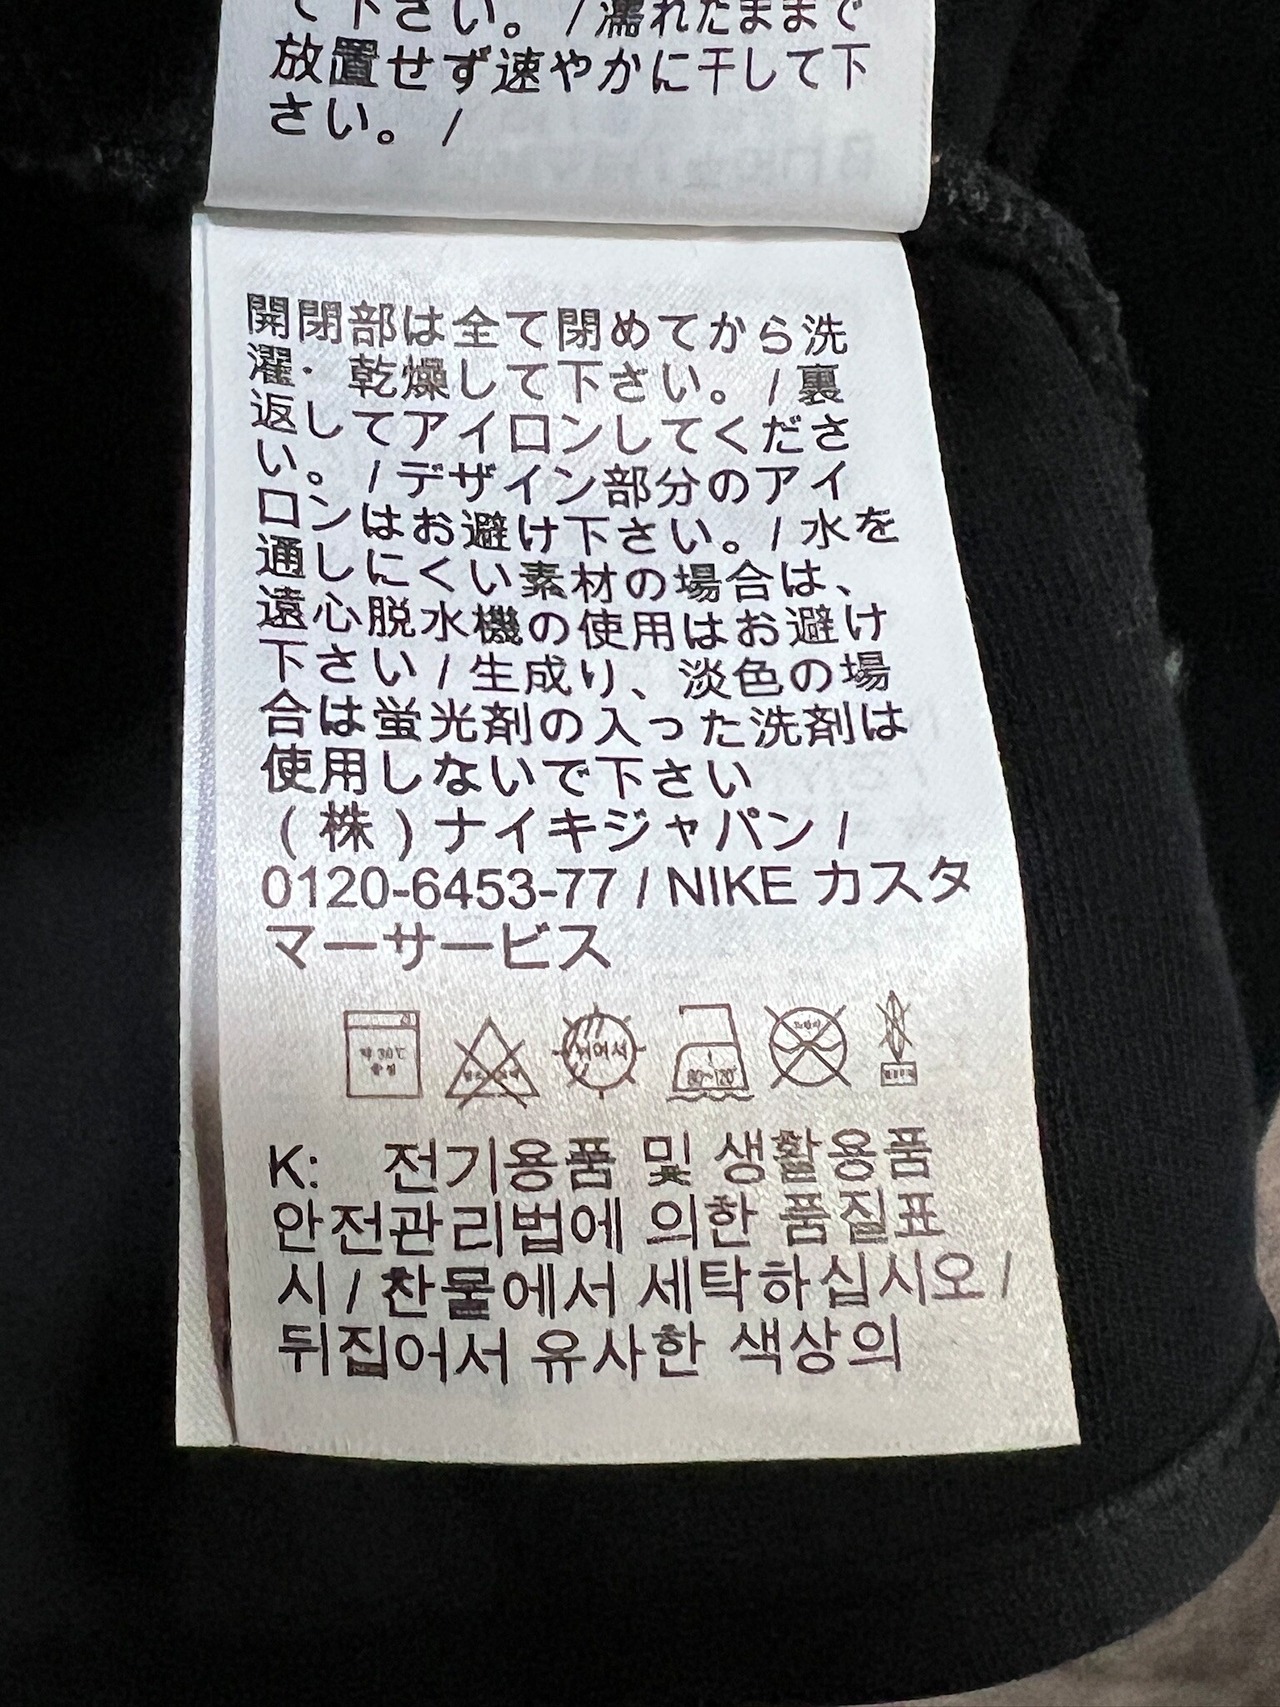 て下さい。/濡れたままで
放置せず速やかに干して下
さい。/
開閉部は全て閉めてから洗
濯・乾燥して下さい。/裏
返してアイロンしてくださ
い。/デザイン部分のアイ
ロンはお避け下さい。/水を
通しにくい素材の場合は、
遠心脱水機の使用はお避け
下さい/生成り、淡色の場
合は蛍光剤の入った洗剤は
使用しないで下さい
(株)ナイキジャパン/
0120-6453-77 / NIKE カスタ
マーサービス
약 30℃
중성
뉘어서
80~120
K: 전기용품 및 생활용품
안전관리법에 의한 품질표
시/찬물에서 세탁하십시오/
뒤집어서 유사한 색상의